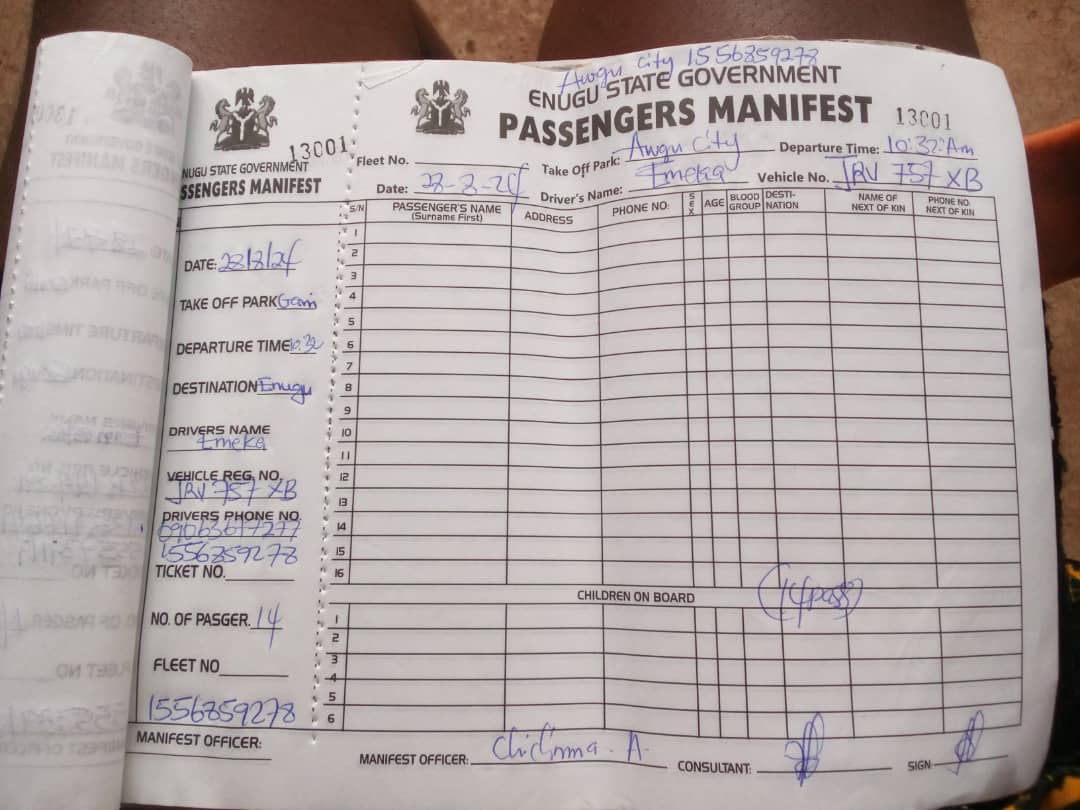 13001
NUGU STATE GOVERNMENT
SSENGERS MANIFEST
DATE: 28/8/24
TAKE OFF PARK
DEPARTURE TIME 10:32
DESTINATION Enugu
DRIVERS NAME
Emeka
VEHICLE REG. NO.
JRV 757 XB
DRIVERS PHONE NO.
09063677277
1556859278
TICKET NO.
NO. OF PASGER. 14
FLEET NO
1556859278
MANIFEST OFFICER:
Awgu City 1556859278
ENUGU STATE GOVERNMENT
PASSENGERS MANIFEST 13001
Fleet No. Take Off Park: Awgu City Departure Time: 10:32 Am
Date: 28-8-24 Driver's Name: Emeka Vehicle No. JRV 757 XB
S/N PASSENGER'S NAME (Surname First) ADDRESS PHONE NO: SEX AGE BLOOD GROUP DESTI-NATION NAME OF NEXT OF KIN PHONE NO. NEXT OF KIN
1
2
3
4
5
6
7
8
9
10
11
12
13
14
15
16
CHILDREN ON BOARD (14pass)
1
2
3
4
5
6
MANIFEST OFFICER: Chidinma. A. CONSULTANT: SIGN